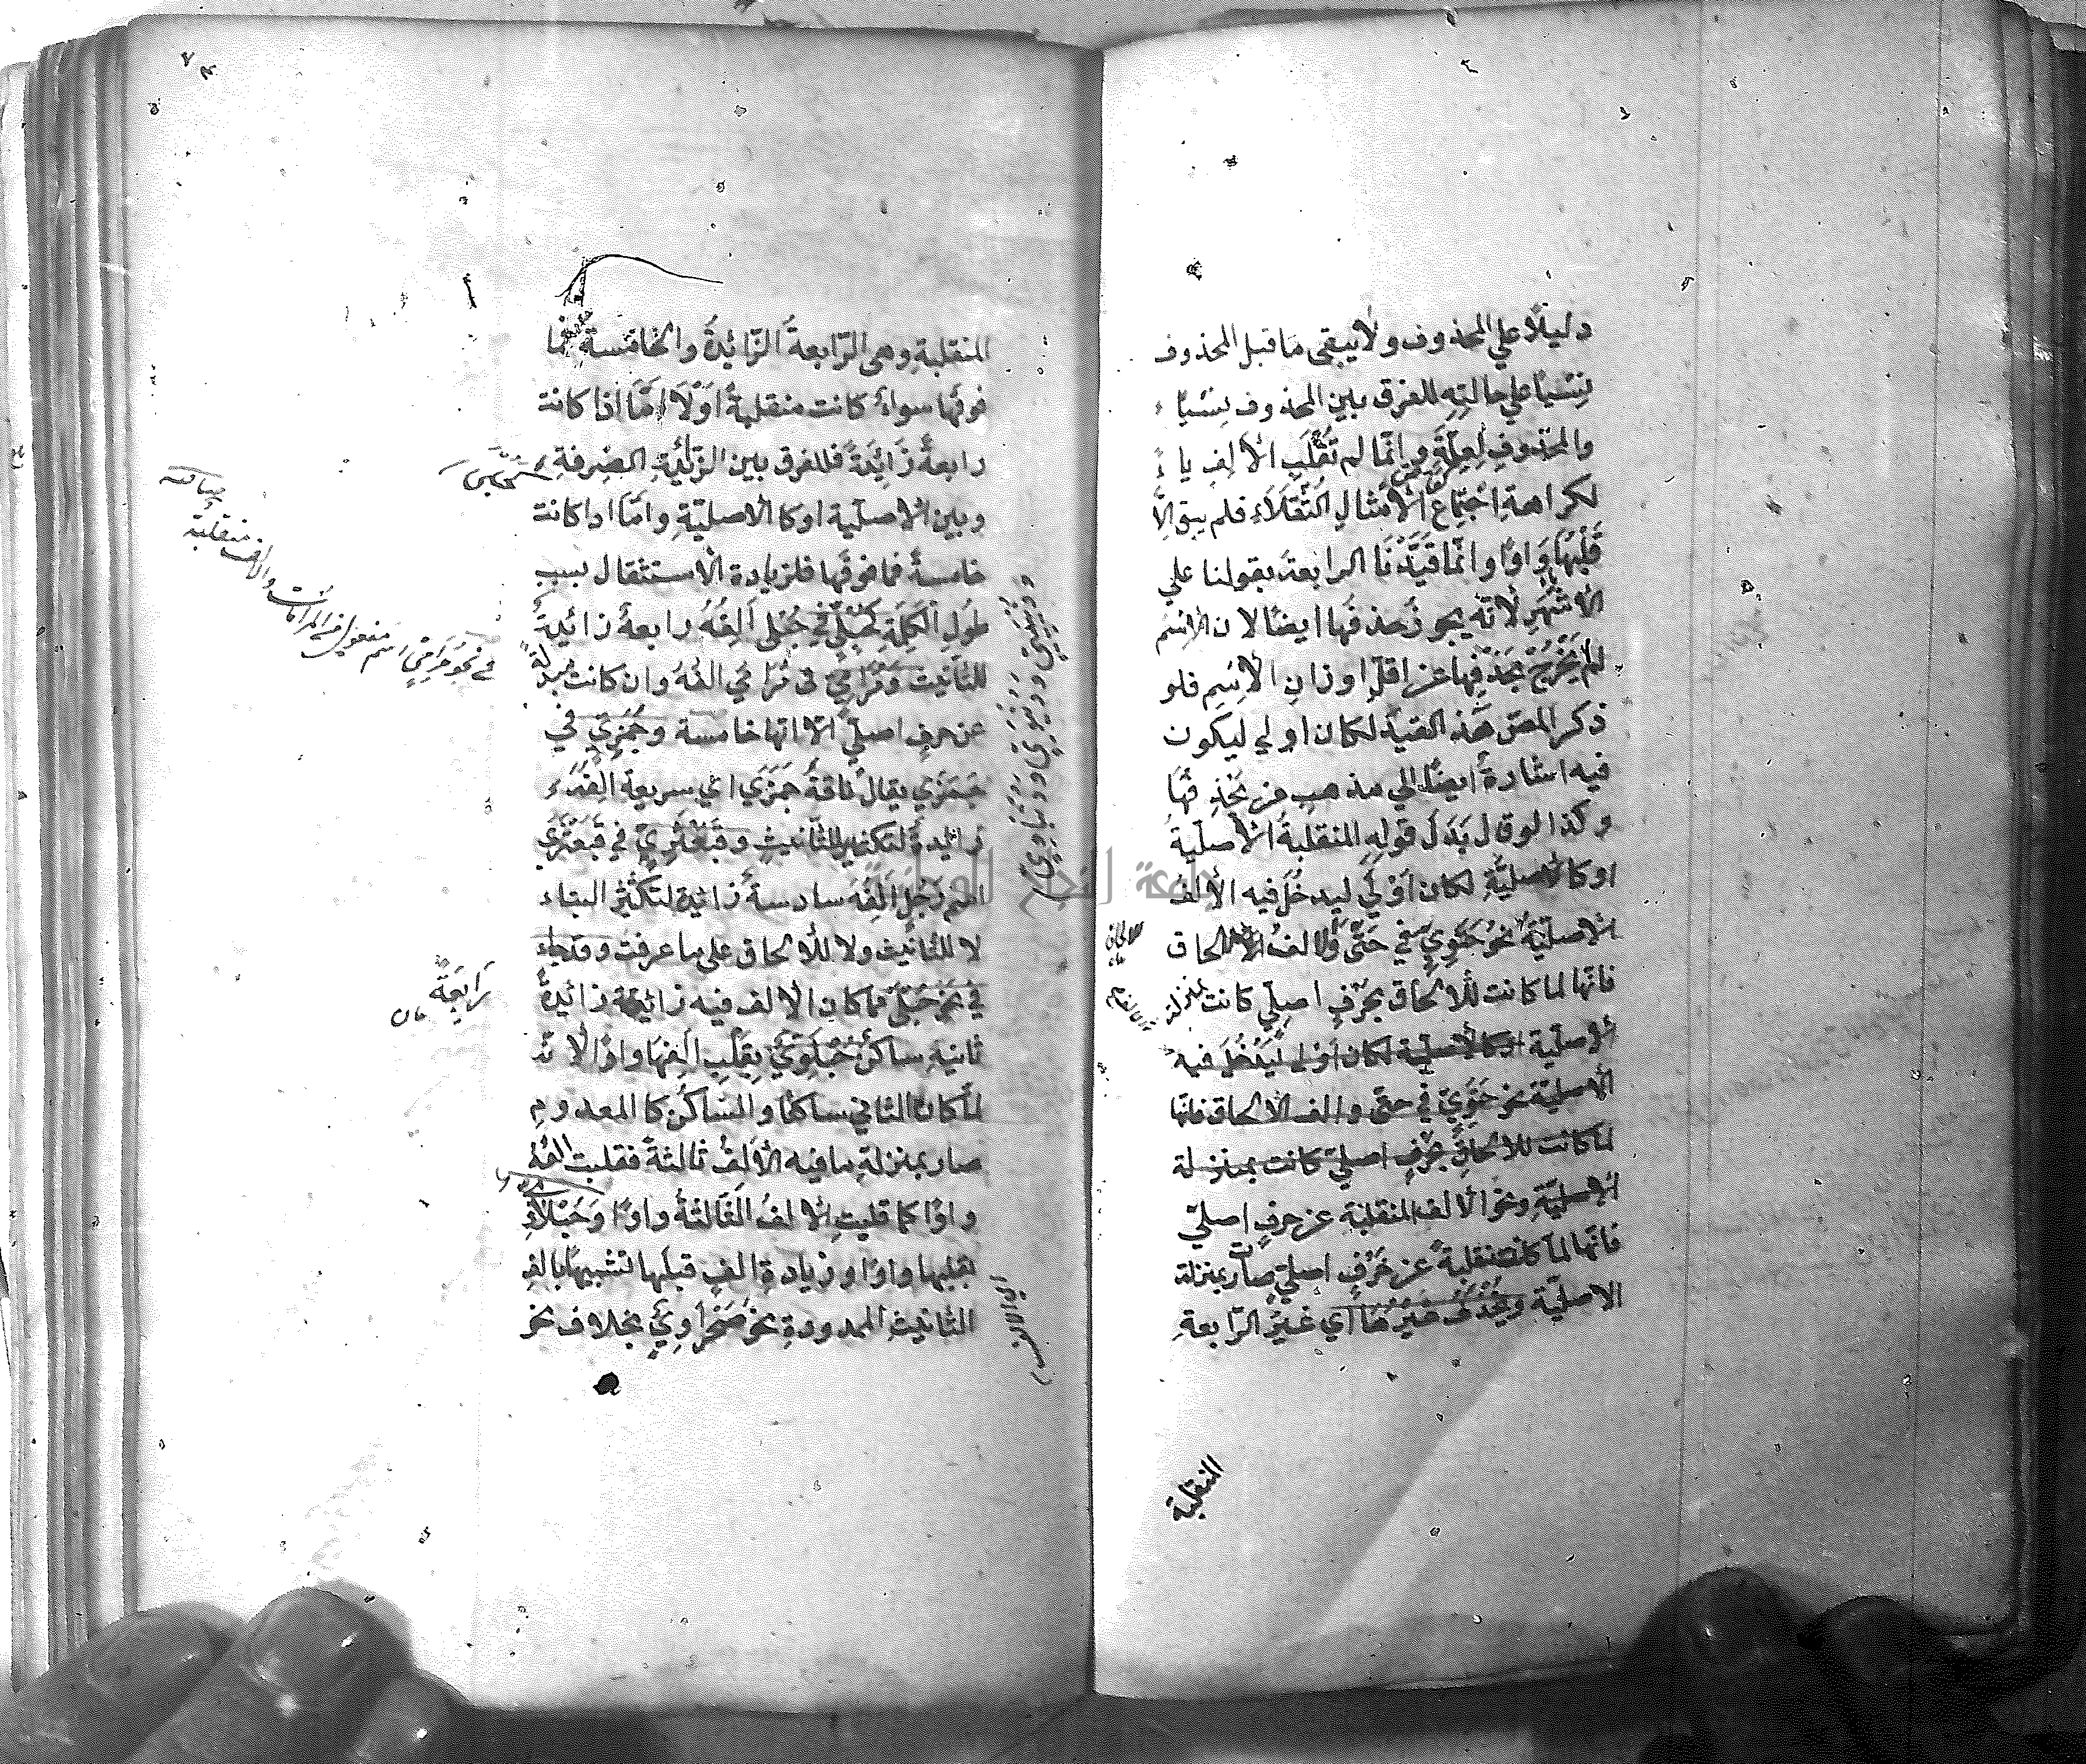 دليلًا علي المحذوف ولا يبقى ما قبل المحذوف
نسيا علي حالته للفرق بين المحذوف نسيًا
والمحذوف لعلة وانما لم تقلب الالف ياء
لكراهة اجتماع الامثال الثقلاء فلم يبق الا
قلبها واوا وانما قيدنا الرابعة بقولنا علي
الاشهر لانه يجوز حذفها ايضا لان الاسم
لم يخرج بحذفها عن اقل اوزان الاسم فلو
ذكر المص هذه القيد لكان اولي ليكون
فيه اشارة ايضا الي مذهب من يحذفها
وكذا لو قال بدل قوله المنقلبة الاصلية
او كالاصلية لكان اولي ليدخل فيه الالف
الاصلية نحو حتوي في حتى والف الالحاق
فانها لما كانت للالحاق بحرف اصلي كانت بمنزلة
الاصلية او كالاصلية لكان اولي ليدخل فيه
الاصلية نحو حتوي في حتى والف الالحاق فانها
لما كانت للالحاق بحرف اصلي كانت بمنزلة
الاصلية ونحو الالف المنقلبة عن حرف اصلي
فانها لما كانت منقلبة عن حرف اصلي صار بمنزلة
الاصلية ويحذف غيرها اي غير الرابعة
المنقلبة
المنقلبة وهى الرابعة الزائدة والخامسة فما
فوقها سواء كانت منقلبة او لا اما اذا كانت
رابعة زائدة فللفرق بين الزائدة الصرفة
وبين الاصلية او كالاصلية واما اذا كانت
خامسة فما فوقها فلزيادة الاستثقال بسبب
طول الكلمة كحبلي في حبلى الفه رابعة زائدة
للتانيث ومرامي في مرامي الفه وان كانت مبدلة
عن حرف اصلي الا انها خامسة وجمزي في
جمزي يقال ناقة جمزي اي سريعة الفه
زائدة للتانيث وقبعثري في قبعثري
اسم رجل الفه سادسة زائدة لتكثير البناء
لا للتانيث ولا للالحاق على ما عرفت وقد جاء
في نحو حبلى مما كان الالف فيه زائدة
ثانيه ساكن حبلوي بقلب الفها واوا لانه
لما كان الثاني ساكنا والساكن كالمعدوم
صار بمنزلة ما فيه الالف ثالثة فقلبت الفه
واوا كما قلبت الالف الثالثة واوا وحبلاوي
بقلبها واوا وزيادة الف قبلها تشبيها بالف
التانيث الممدودة نحو صحراوي بخلاف نحو
رابعة